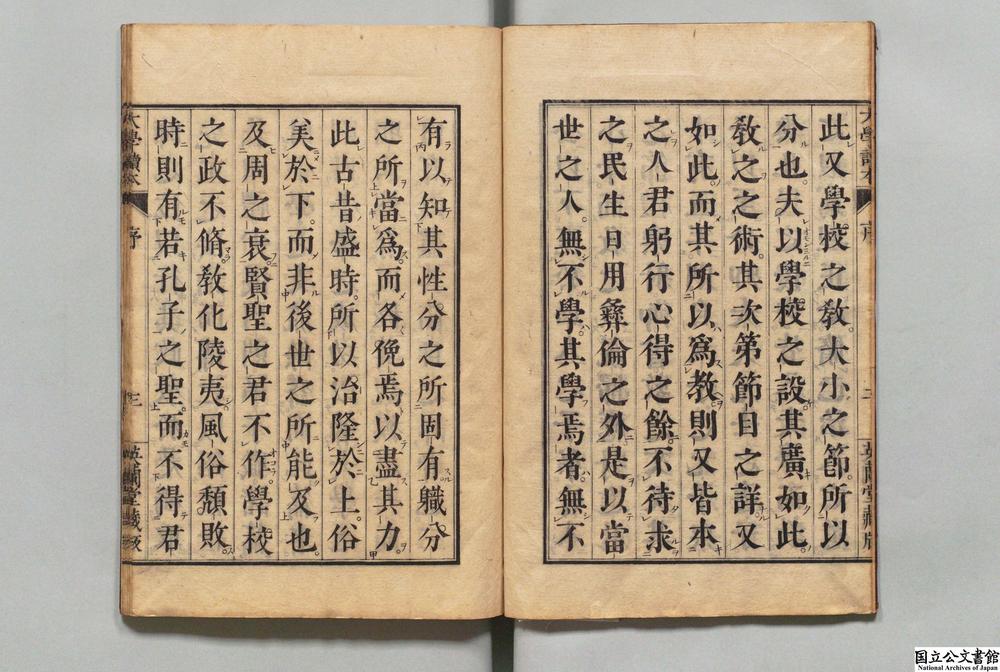 此又學校之教大小之節所以
分也夫以學校之設其廣如此
教之之術其次第節目之詳又
如此而其所以爲教則又皆本
之人君躬行心得之餘不待求
之民生日用彝倫之外是以當
世之人無不學其學焉者無不
有以知其性分之所固有職分
之所當爲而各俛焉以盡其力
此古昔盛時所以治隆於上俗
美於下而非後世之所能及也
及周之衰賢聖之君不作學校
之政不脩教化陵夷風俗頽敗
時則有若孔子之聖而不得君
序
三
國立公文書館
National Archives of Japan